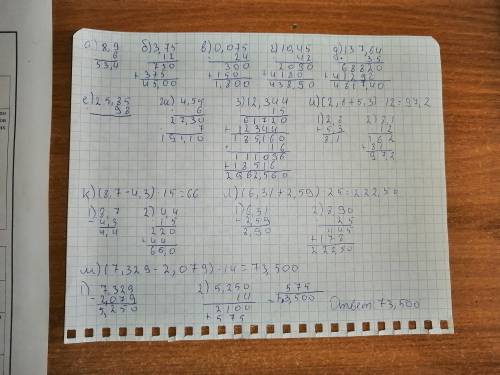 а) 8,9 б) 3,75 в) 0,075 г) 10,45 д) 137,64
6 12 24 42 35
53,4 750 300 2090 68820
+375 +150 +4180 +41292
45,00 1,800 438,90 4817,40
е) 25,85 ж) 4,55 з) 12,344 и) (2,8+5,3)·12=97,2
98 6 15 1) 2,8 2) 8,1
27,30 61720 +5,3 12
7 +12344 8,1 162
191,10 185,160 +81
6 97,2
111096
+18516
2962,560
к) (8,7-4,3)·15=66 л) (6,31+2,59)·25=222,50
1) 8,7 2) 4,4 1) 6,31 2) 8,90
-4,3 15 +2,59 25
4,4 220 8,90 445
+44 +178
66,0 222,50
м) (7,329-2,079)·14=73,500
1) 7,329 2) 5,250 575
-2,079 14 73,500
5,250 2100 Ответ: 73,500
+575